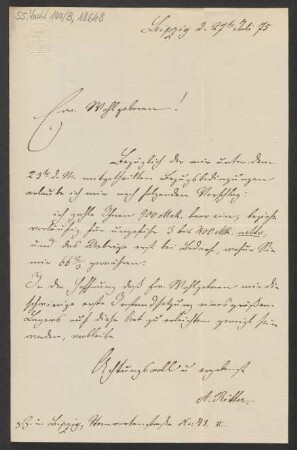 55/Nachl 100/B, 18648
Leipzig d. 27ten Juli 75
Ew. Wohlgeboren!
Bezüglich der mir unter dem
23ten d. M. mitgetheilten Bezugsbedingungen
erlaube ich mir noch folgenden Vorschlag:
ich zahle Ihnen 300 Mk. baar ein, beziehe
vorläufig für ungefähr 3 bis 400 Mk. netto,
und das Uebrige erst bei Bedarf, wofür Sie
mir 66 2/3 gewähren.
In der Hoffnung daß Ew. Wohlgeboren mir die
schwierige erste Instandsetzung eines größeren
Lagers auf diese Art zu erleichtern geneigt sein
werden, verbleibe
Achtungsvoll u. ergebenst
A. Ritter.
z. Z. in Leipzig, Sternwartenstraße No. 43. II.